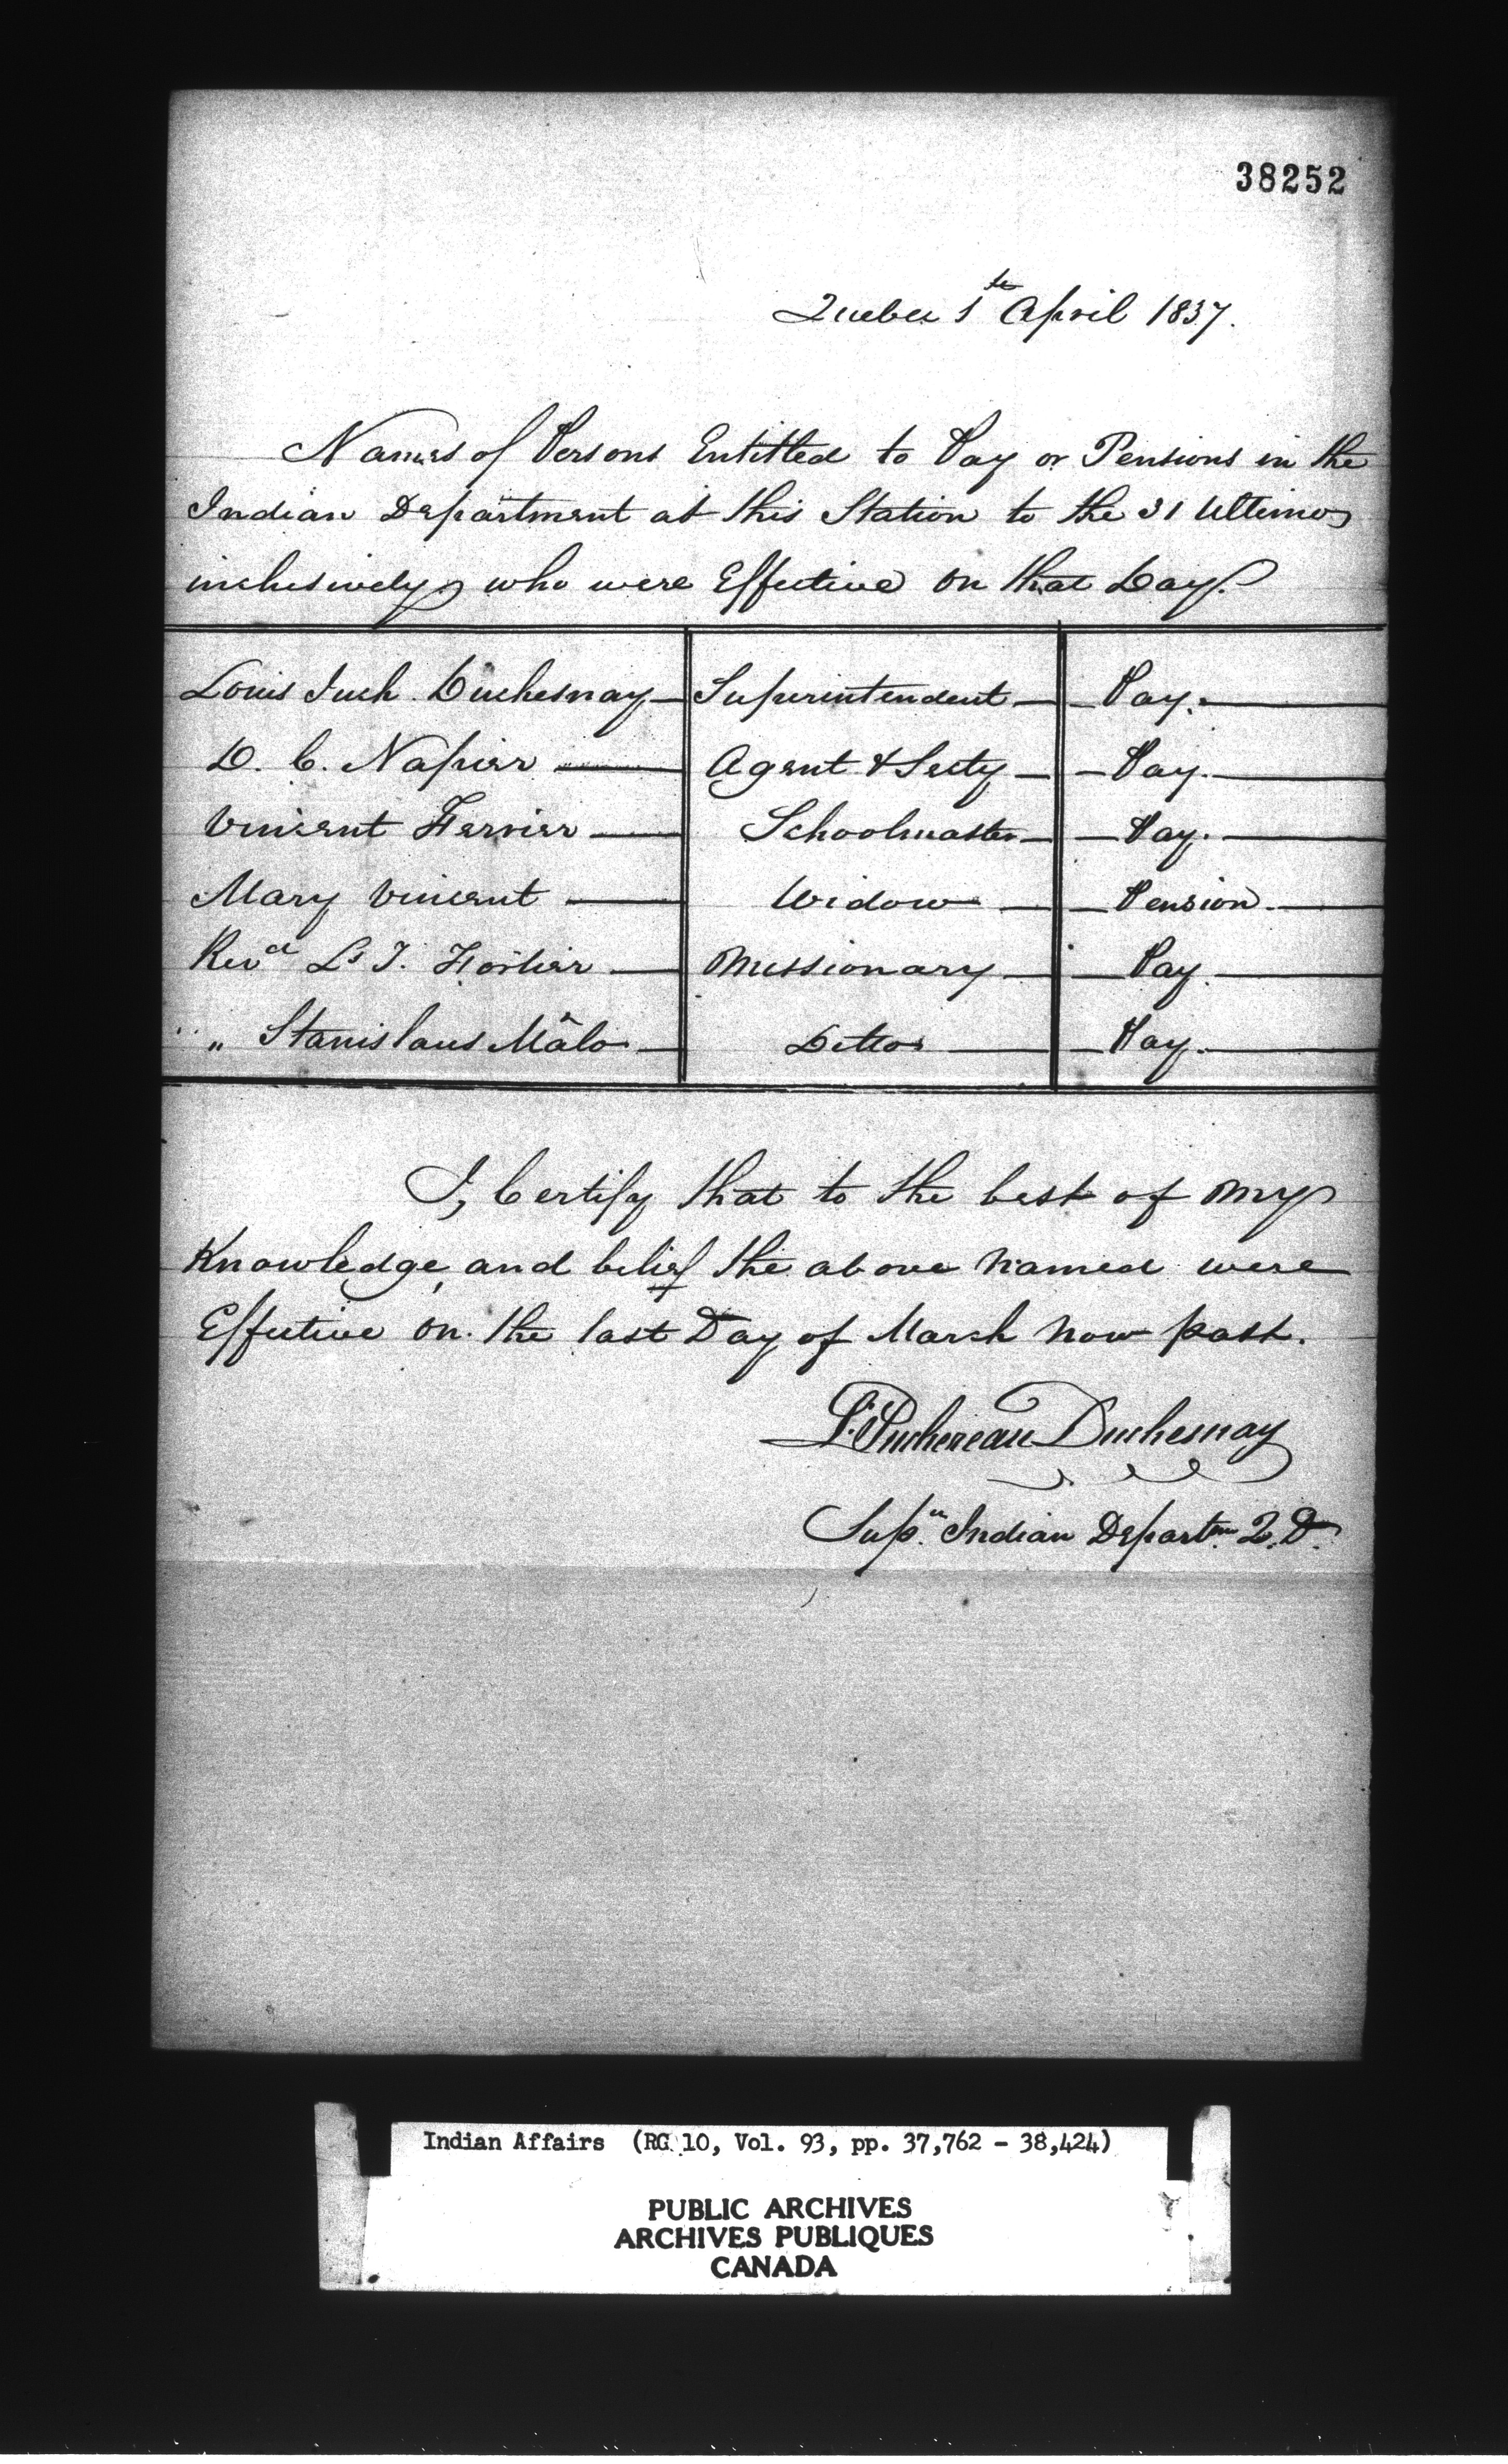 38252
Quebec 1st April 1837.
Names of Persons Entitled to Pay or Pensions in the
Indian Department at this Station to the 31 Ultimo
inclusively who were Effective on that Day.
Louis Juch. Duchesnay Superintendent Pay.
D. C. Napier Agent & Secty Pay.
Vincent Ferrier Schoolmaster Pay.
Mary Vincent Widow Pension
Revd Ls T. Fortier Missionary Pay
" Stanislaus Mâlo Ditto Pay.
I, Certify that to the best of my
Knowledge and belief the above named were
Effective on the last Day of March now past.
L. Juchereau Duchesnay
Supn Indian Departm Q. D.
Indian Affairs (RG 10, Vol. 93, pp. 37,762 - 38,424)
PUBLIC ARCHIVES
ARCHIVES PUBLIQUES
CANADA